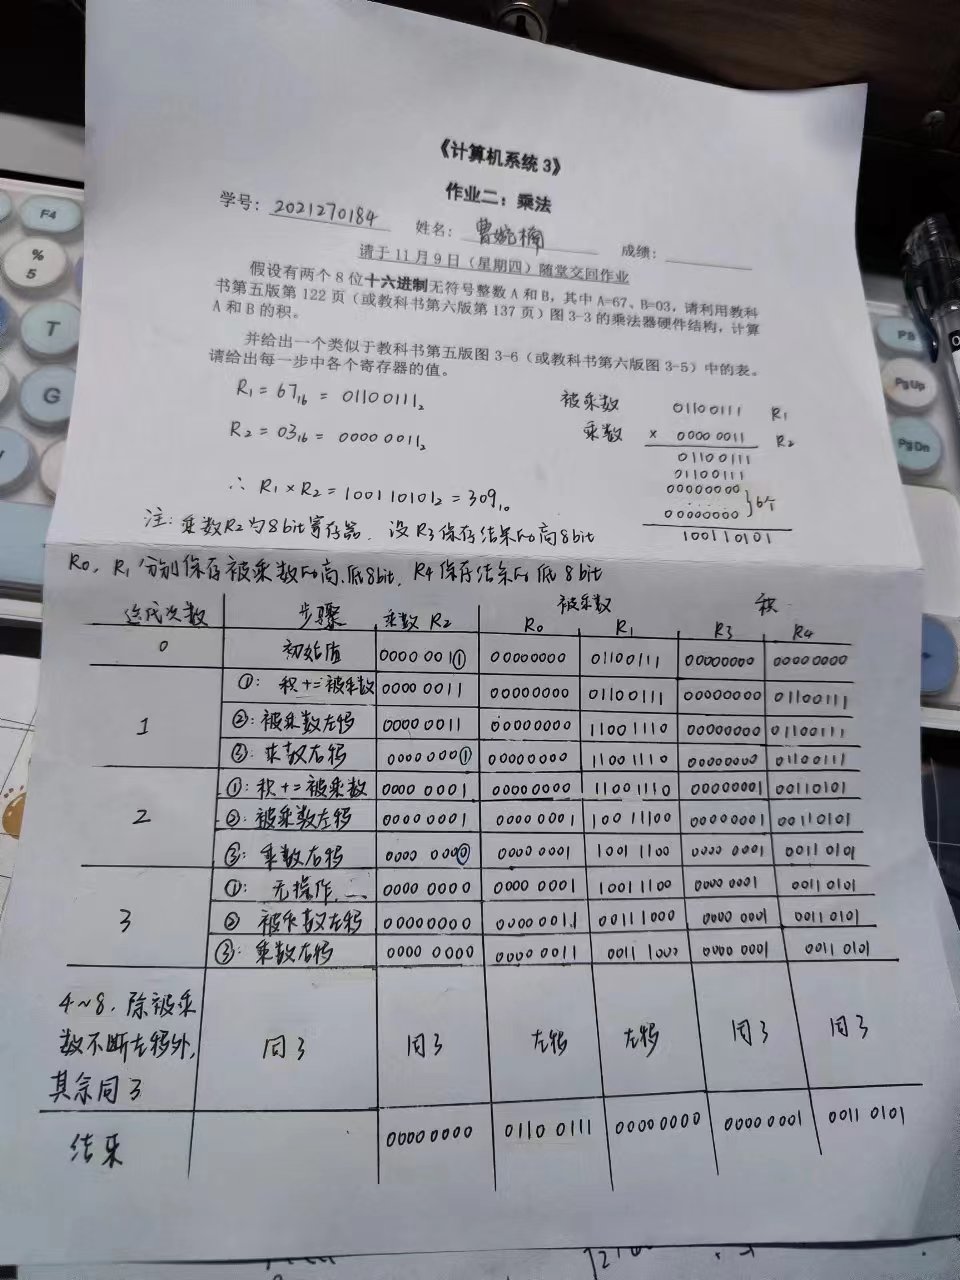 《计算机系统 3》
作业二：乘法
学号：2021270184 姓名：曹婉楠 成绩：
请于 11 月 9 日（星期四）随堂交回作业
假设有两个 8 位十六进制无符号整数 A 和 B，其中 A=67、B=03，请利用教科
书第五版第 122 页（或教科书第六版第 137 页）图 3-3 的乘法器硬件结构，计算
A 和 B 的积。
并给出一个类似于教科书第五版图 3-6（或教科书第六版图 3-5）中的表。
请给出每一步中各个寄存器的值。
R₁ = 67₁₆ = 01100111₂
R₂ = 03₁₆ = 0000 0011₂
∴ R₁ × R₂ = 100110101₂ = 309₁₀
被乘数 01100111 R₁
乘数 × 0000 0011 R₂
01100111
01100111
00000000
····· }6个
00000000
100110101
注：乘数R₂为8bit寄存器，设R₃保存结果的高8bit
R₀，R₁分别保存被乘数的高、低8bit，R₄保存结果的低8bit
迭代次数 步骤 乘数 R₂ 被乘数 积
R₀ R₁ R₃ R₄
0 初始值 0000 0011 00000000 01100111 00000000 00000000
1 ①：积+=被乘数 0000 0011 00000000 01100111 00000000 01100111
②：被乘数左移 0000 0011 00000000 11001110 00000000 01100111
③：乘数右移 0000 0001 00000000 11001110 00000000 01100111
2 ①：积+=被乘数 0000 0001 00000000 11001110 00000001 00110101
②：被乘数左移 0000 0001 0000 0001 100 11100 00000001 00110101
③：乘数右移 0000 0000 0000 0001 1001 1100 0000 0001 0011 0101
3 ①：无操作…… 0000 0000 0000 0001 1001 1100 0000 0001 0011 0101
② 被乘数左移 00000000 0000 0011 00111000 0000 0001 0011 0101
③：乘数右移 0000 0000 0000 0011 0011 1000 0000 0001 0011 0101
4~8，除被乘
数不断左移外，
其余同3
同3 同3 左移 左移 同3 同3
结果 00000000 0110 0111 0000 0000 0000 0001 0011 0101
F4
%
5
T
G
P8
PgUp
PgDn